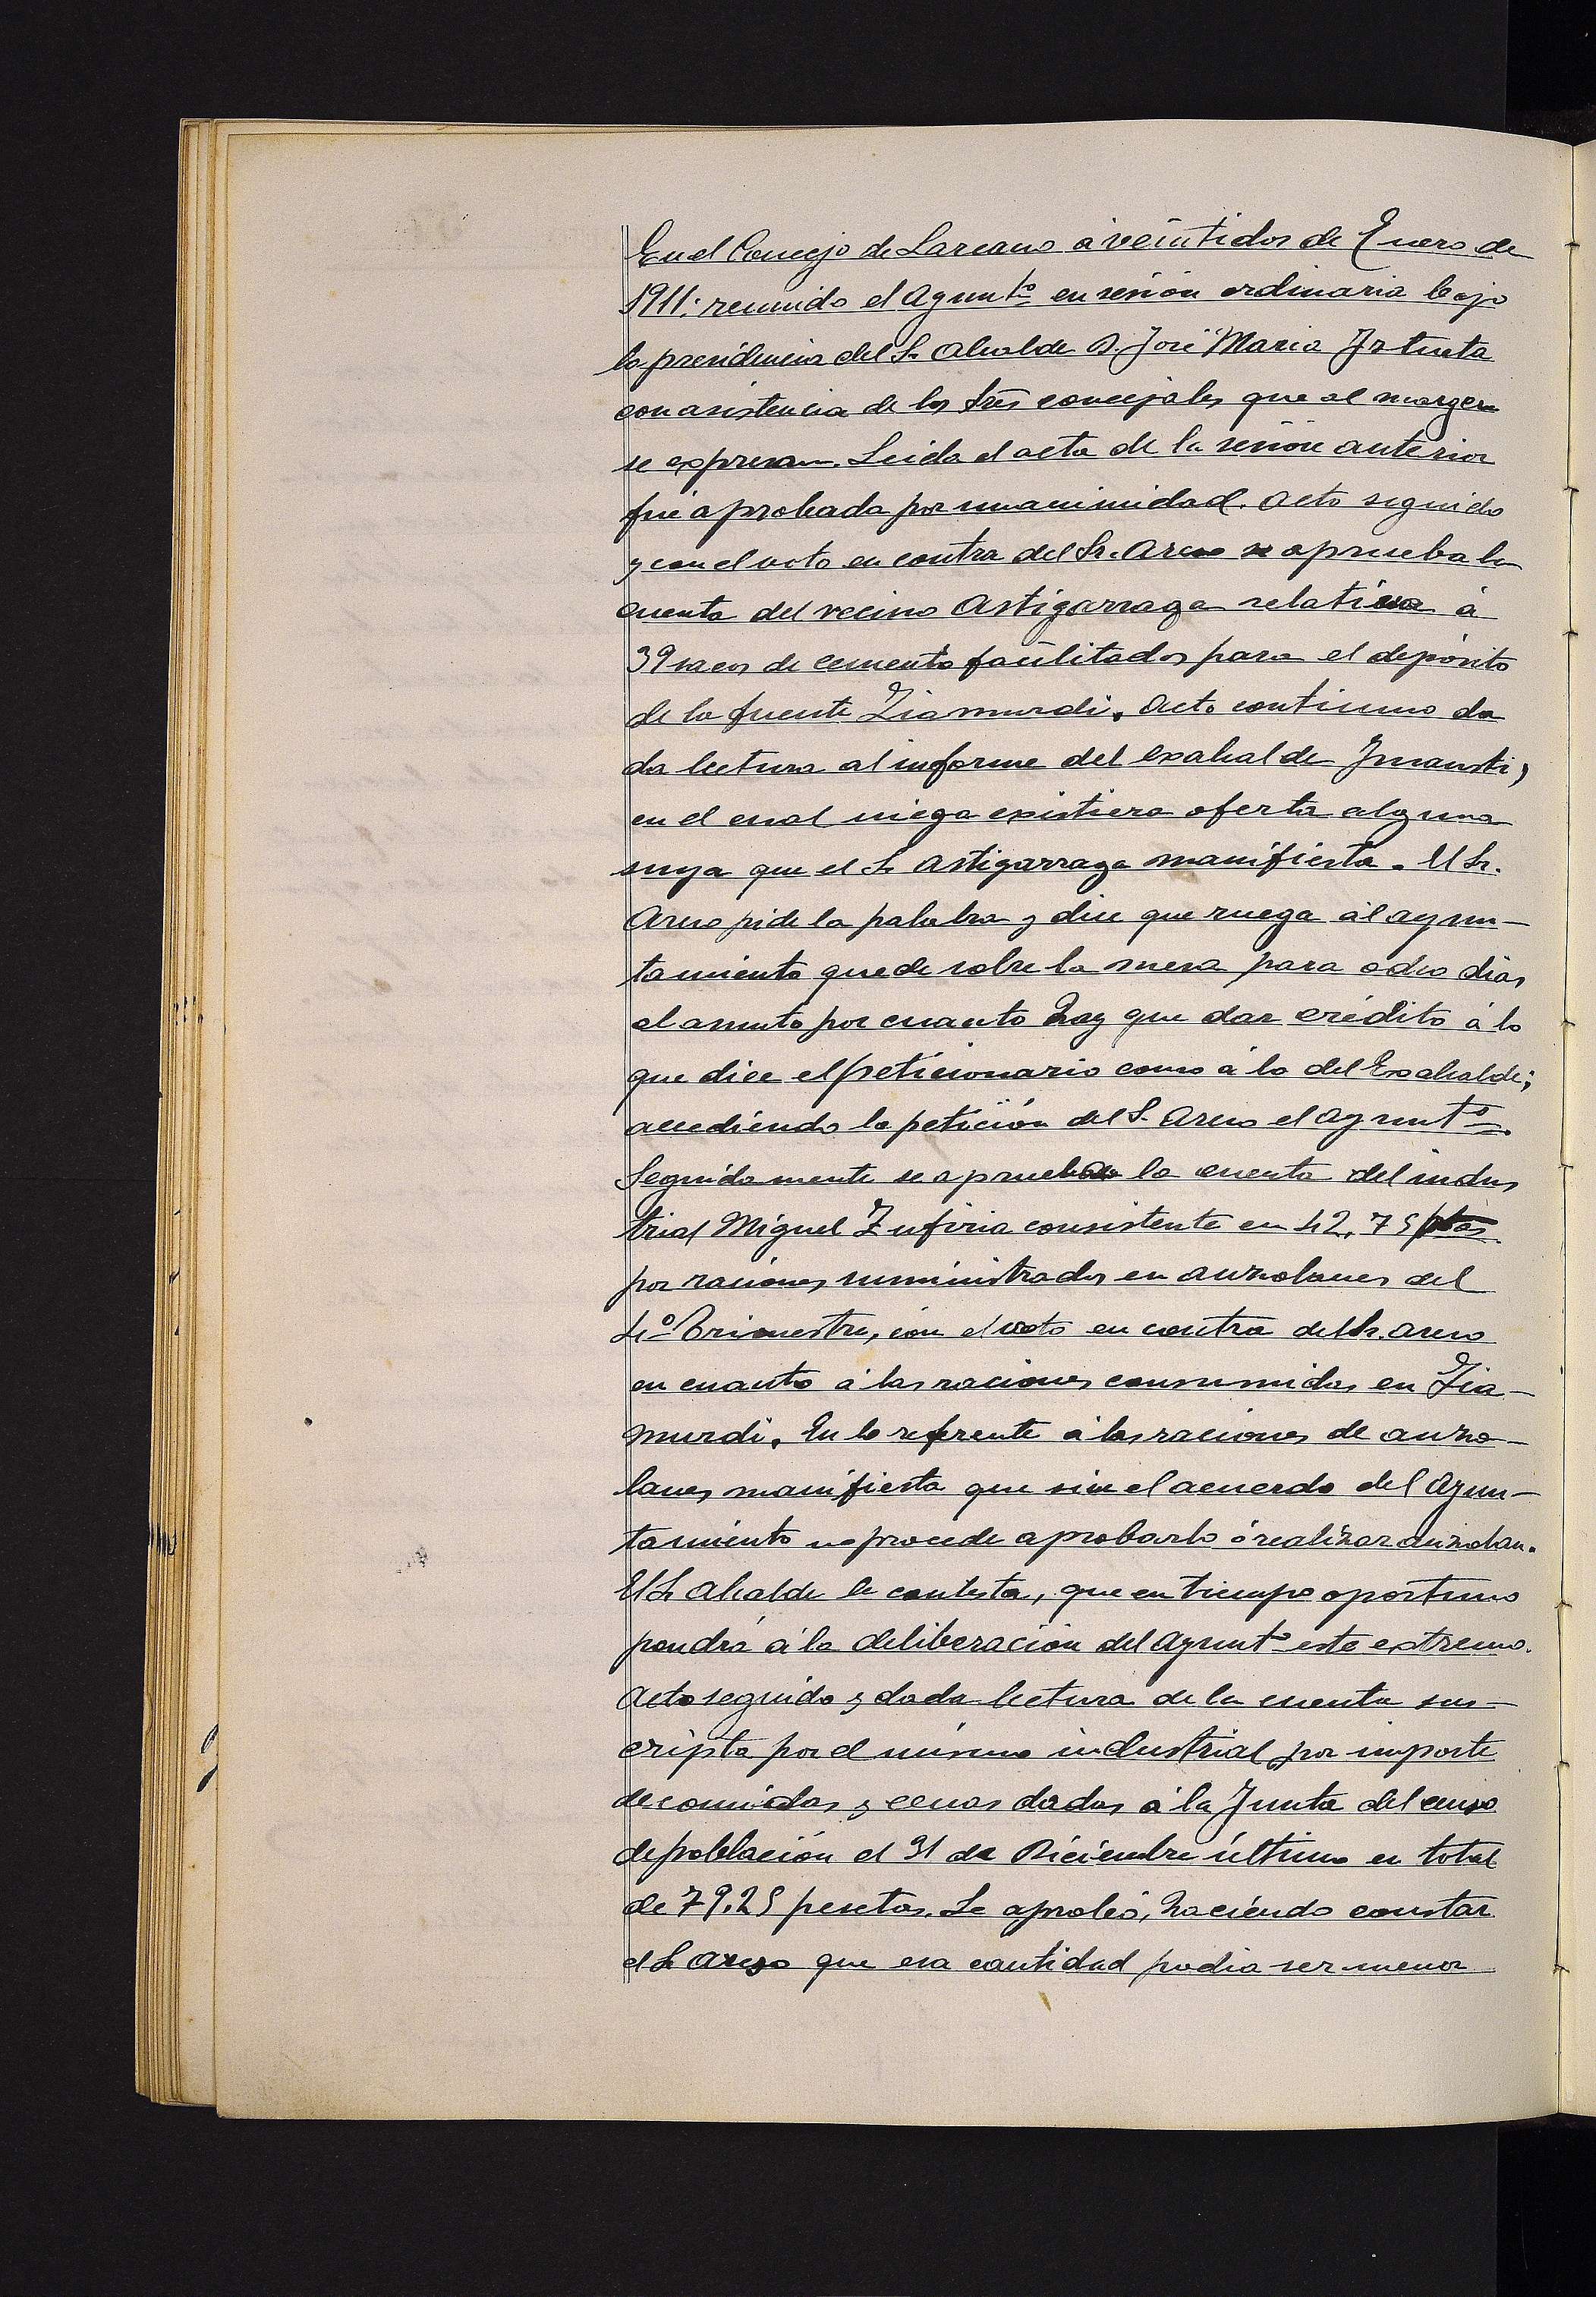 En el Concejo de Lazcano á veintidos de Enero de
1911: reunido el Ayuntº en sesión ordinaria bajo
la presidencia del Sr Alcalde D. José Maria Iztueta
con asistencia de los Sres concejales que al margen
se expresan. Leida el acta de la sesion anterior
fué aprobada por unanimidad. Acto seguido
y con el voto en contra del Sr. Areso se aprueba la
cuenta del vecino Astigarraga relativa á
39 sacos de cemento facilitados para el depósito
de la fuente Ziamurdi. Acto continuo da
da lectura al informe del exalcalde Imausti,
en el cual niega existiera oferta alguna
suya que el Sr Astigarraga manifiesta. El Sr.
Areso pide la palabra y dice que ruega al ayun-
tamiento quede sobre la mesa para ocho dias
el asunto por cuanto hay que dar crédito á lo
que dice el peticionario como á lo del Exalcalde;
accediendo la petición del S. Areso el ayuntº.
Seguidamente se aprueba la cuenta del indus
trial Miguel Zufiria consistente en 42,75 ptas
por raciones suministrados en auzolanes del
4º Trimestre, con el voto en contra del Sr. Areso
en cuanto á las raciones consumidas en Zia-
murdi. En lo referente á las raciones de auzo-
lanes manifiesta que sin el acuerdo del Ayun-
tamiento no procede aprobarlo ó realizar auzolan.
El Sr Alcalde le contesta, que en tiempo oportuno
pondrá á la deliberación del Ayuntº este extremo.
Acto seguido y dada lectura de la cuenta sus-
cripta por el mismo industrial por importe
de comidas y cenas dadas á la Junta del censo
de población el 31 de Diciembre último en total
de 79,25 pesetas. Se aprobó, haciendo constar
el Sr Areso que esa cantidad podia ser menor